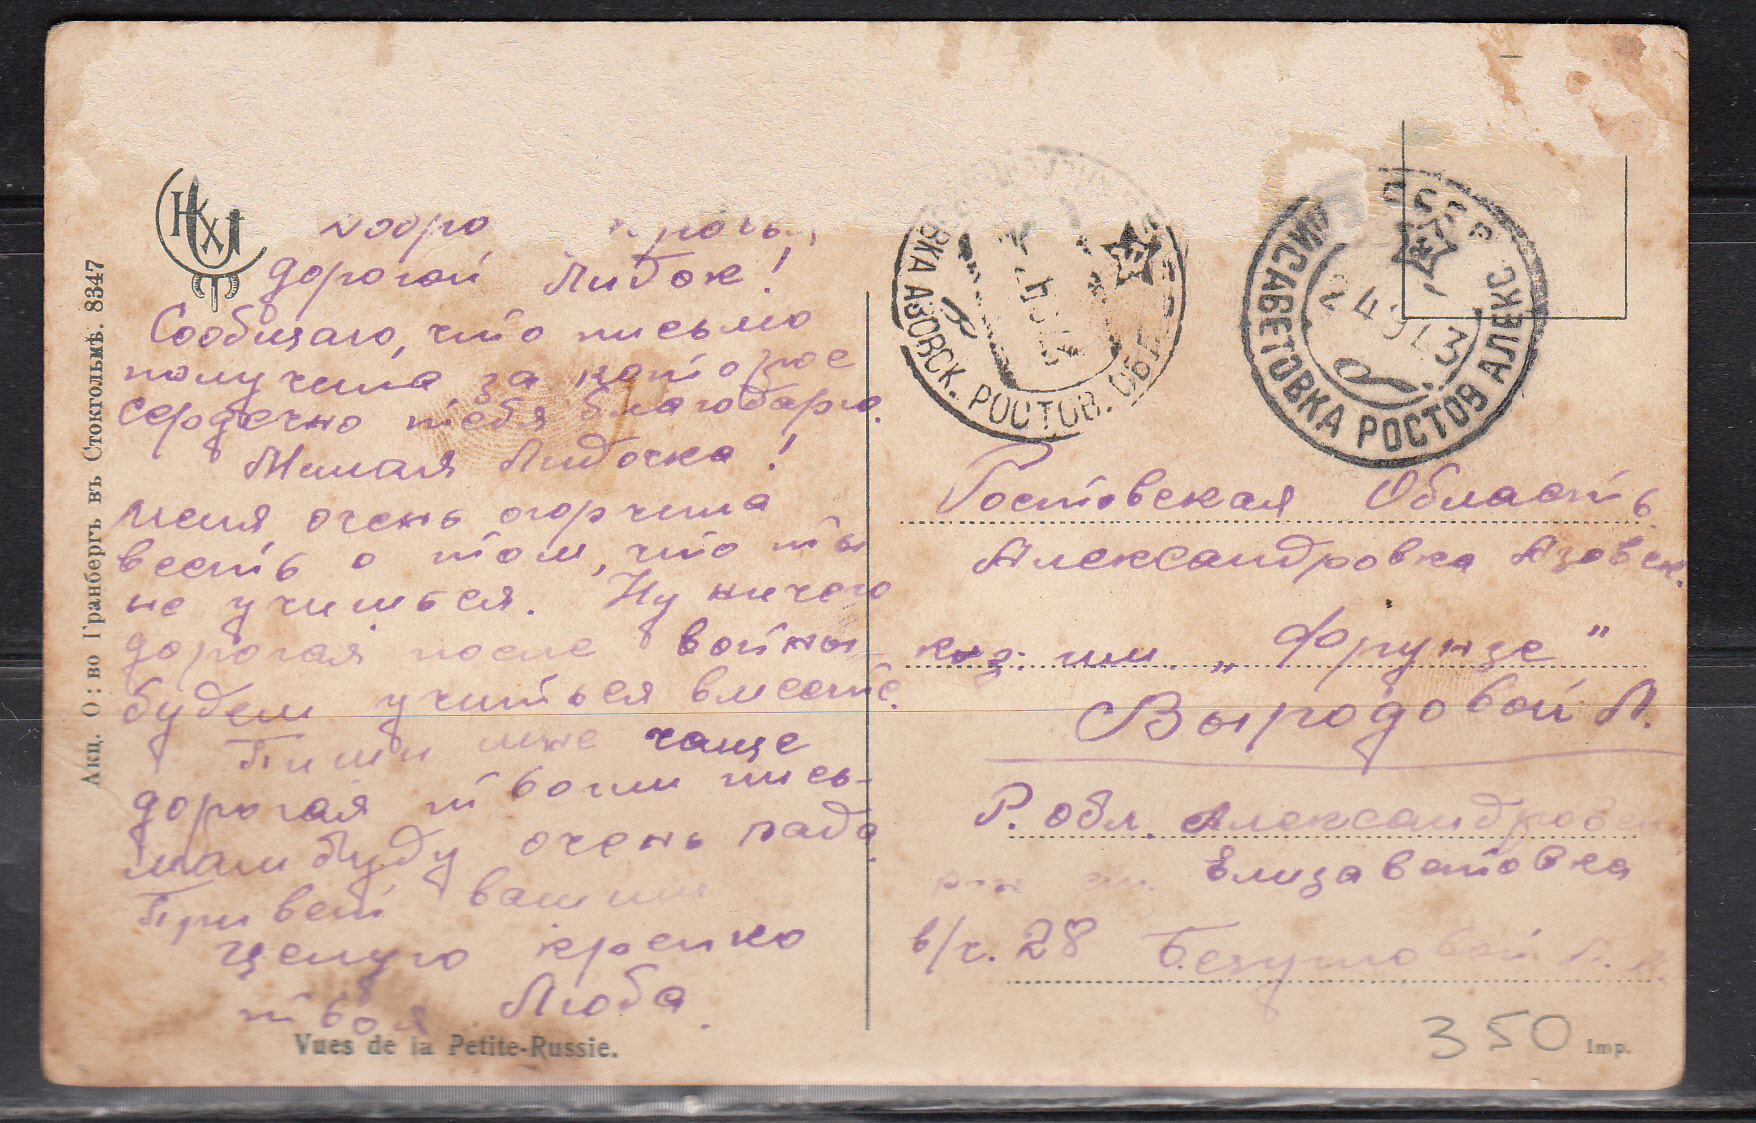 дорогой Лидок!
Сообщаю, что письмо
получила за которое
сердечно тебя благодарю.
Милая Лидочка!
меня очень огорчила
весть о том, что ты
не учишься. Ну ничего
дорогая после войны
будем учиться вместе.
Пиши мне чаще
дорогая твоим пись-
мам буду очень рада.
Привет вашим
Целую крепко
твоя Люба.
Vues de la Petite-Russie.
Акц. О:во Гранбергъ въ Стокгольмѣ. 8347
АЗОВСК. РОСТОВ. ОБЛ
СССР
ЕЛИСАВЕТОВКА РОСТОВ АЛЕКС
24 9 43
Ростовская Область
Александровка Азовск.
им. „Фрунзе"
Выродовой Л.
Р. обл. Александровск
Елизаветовка
в/ч. 28
350
Imp.